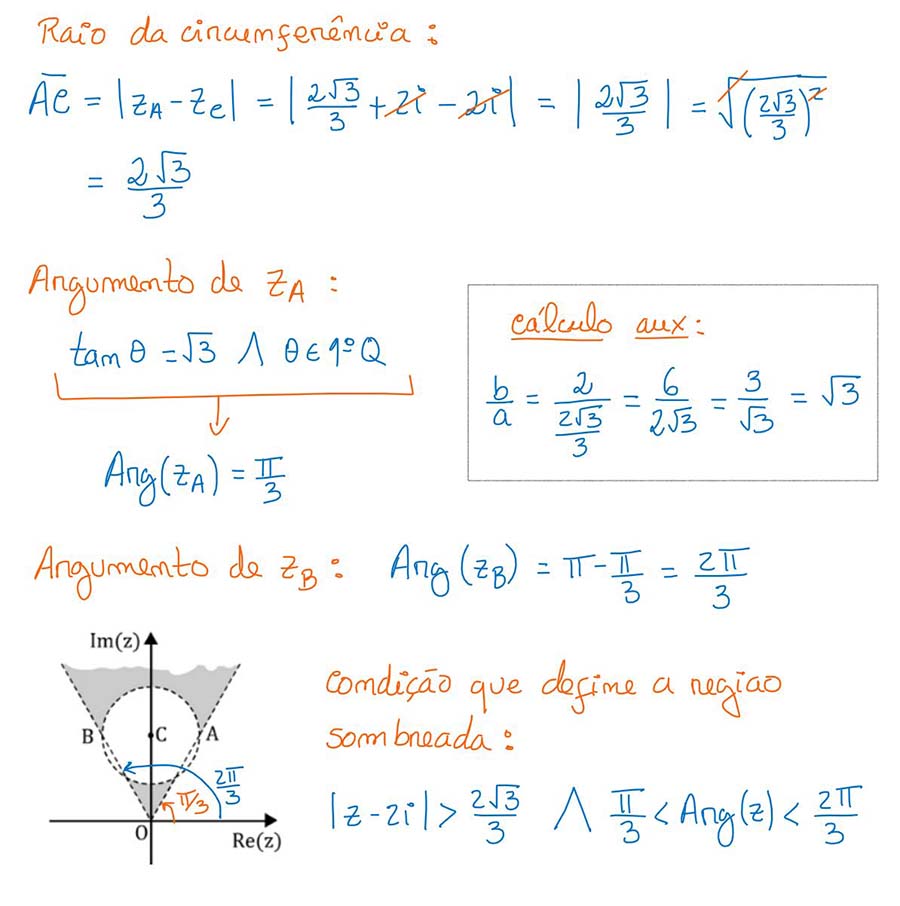 Raio da circunferência :
A̅C̅ = |z_A - z_C| = |2√3/3 + 2i - 2i| = |2√3/3| = √((2√3/3)²)
= 2√3/3
Argumento de z_A :
tan θ = √3 ∧ θ ∈ 1º Q
Arg(z_A) = π/3
cálculo aux :
b/a = 2/(2√3/3) = 6/(2√3) = 3/√3 = √3
Argumento de z_B : Arg(z_B) = π - π/3 = 2π/3
Im(z)
B
C
A
2π/3
π/3
O
Re(z)
Condição que define a regiao
sombreada :
|z - 2i| > 2√3/3 ∧ π/3 < Arg(z) < 2π/3